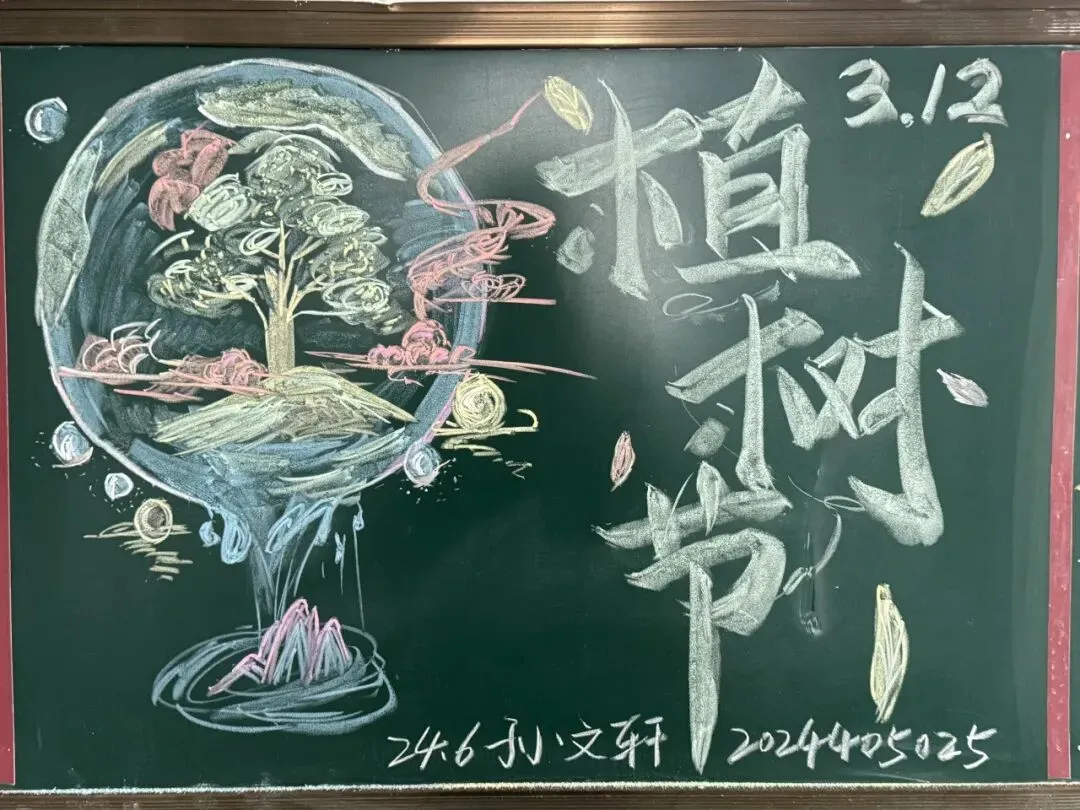 3.12
植
树
节
24.6 孙文轩 2024405025